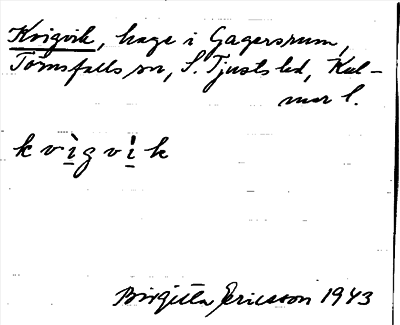 Kvigvik, hage i Gagersrum,
Törnsfalls sn, S. Tjusts hd, Kal-
mar l.
k v ì g v i k
Birgitta Ericsson 1943